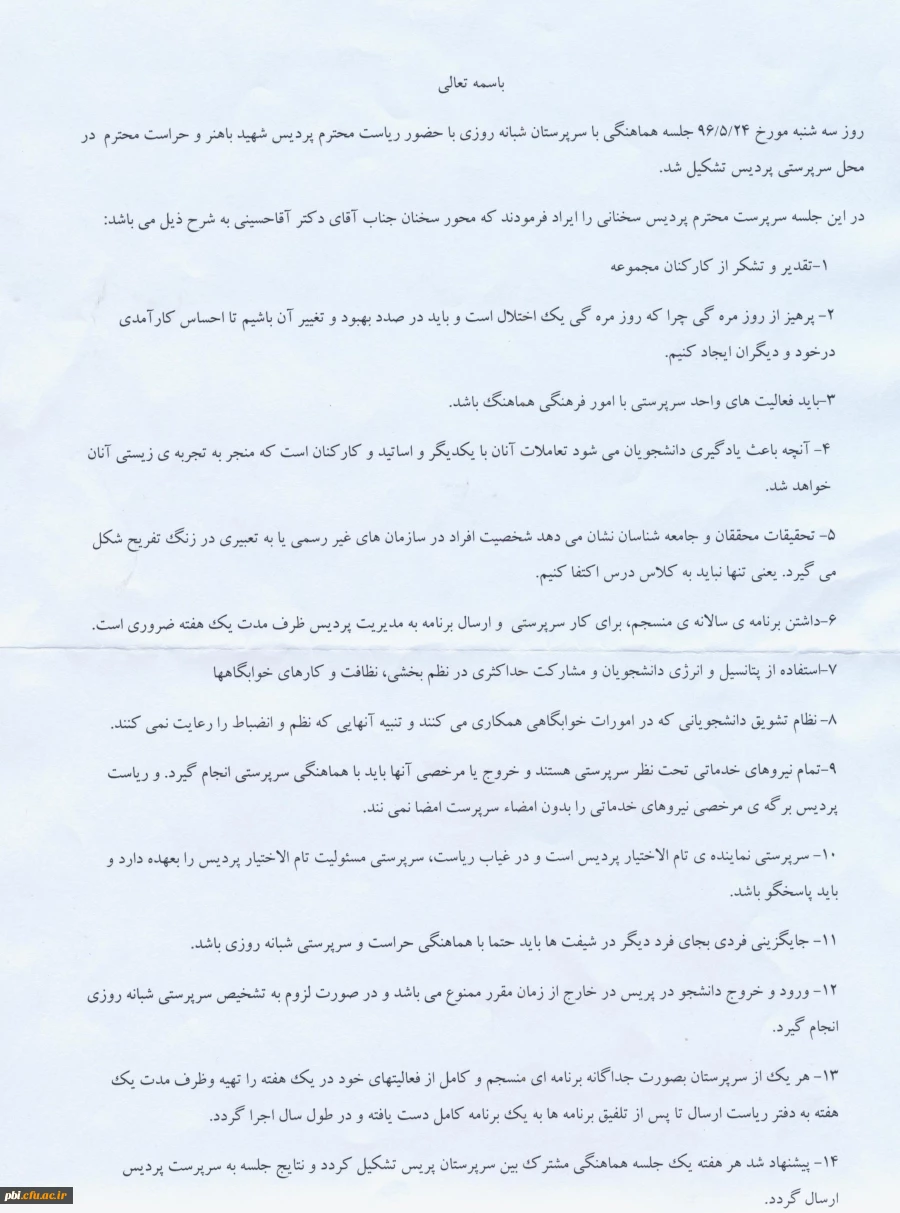 باسمه تعالی
روز سه شنبه مورخ ۹۶/۵/۲۴ جلسه هماهنگی با سرپرستان شبانه روزی با حضور ریاست محترم پردیس شهید باهنر و حراست محترم در
محل سرپرستی پردیس تشکیل شد.
در این جلسه سرپرست محترم پردیس سخنانی را ایراد فرمودند که محور سخنان جناب آقای دکتر آقاحسینی به شرح ذیل می باشد:
۱-تقدیر و تشکر از کارکنان مجموعه
۲- پرهیز از روز مره گی چرا که روز مره گی یک اختلال است و باید در صدد بهبود و تغییر آن باشیم تا احساس کارآمدی
درخود و دیگران ایجاد کنیم.
۳-باید فعالیت های واحد سرپرستی با امور فرهنگی هماهنگ باشد.
۴- آنچه باعث یادگیری دانشجویان می شود تعاملات آنان با یکدیگر و اساتید و کارکنان است که منجر به تجربه ی زیستی آنان
خواهد شد.
۵- تحقیقات محققان و جامعه شناسان نشان می دهد شخصیت افراد در سازمان های غیر رسمی یا به تعبیری در زنگ تفریح شکل
می گیرد. یعنی تنها نباید به کلاس درس اکتفا کنیم.
۶-داشتن برنامه ی سالانه ی منسجم، برای کار سرپرستی و ارسال برنامه به مدیریت پردیس ظرف مدت یک هفته ضروری است.
۷-استفاده از پتانسیل و انرژی دانشجویان و مشارکت حداکثری در نظم بخشی، نظافت و کارهای خوابگاهها
۸- نظام تشویق دانشجویانی که در امورات خوابگاهی همکاری می کنند و تنبیه آنهایی که نظم و انضباط را رعایت نمی کنند.
۹-تمام نیروهای خدماتی تحت نظر سرپرستی هستند و خروج یا مرخصی آنها باید با هماهنگی سرپرستی انجام گیرد. و ریاست
پردیس برگه ی مرخصی نیروهای خدماتی را بدون امضاء سرپرست امضا نمی نند.
۱۰- سرپرستی نماینده ی تام الاختیار پردیس است و در غیاب ریاست، سرپرستی مسئولیت تام الاختیار پردیس را بعهده دارد و
باید پاسخگو باشد.
۱۱- جایگزینی فردی بجای فرد دیگر در شیفت ها باید حتما با هماهنگی حراست و سرپرستی شبانه روزی باشد.
۱۲- ورود و خروج دانشجو در پریس در خارج از زمان مقرر ممنوع می باشد و در صورت لزوم به تشخیص سرپرستی شبانه روزی
انجام گیرد.
۱۳- هر یک از سرپرستان بصورت جداگانه برنامه ای منسجم و کامل از فعالیتهای خود در یک هفته را تهیه وظرف مدت یک
هفته به دفتر ریاست ارسال تا پس از تلفیق برنامه ها به یک برنامه کامل دست یافته و در طول سال اجرا گردد.
۱۴- پیشنهاد شد هر هفته یک جلسه هماهنگی مشترک بین سرپرستان پریس تشکیل کردد و نتایج جلسه به سرپرست پردیس
ارسال گردد.
pbi.cfu.ac.ir